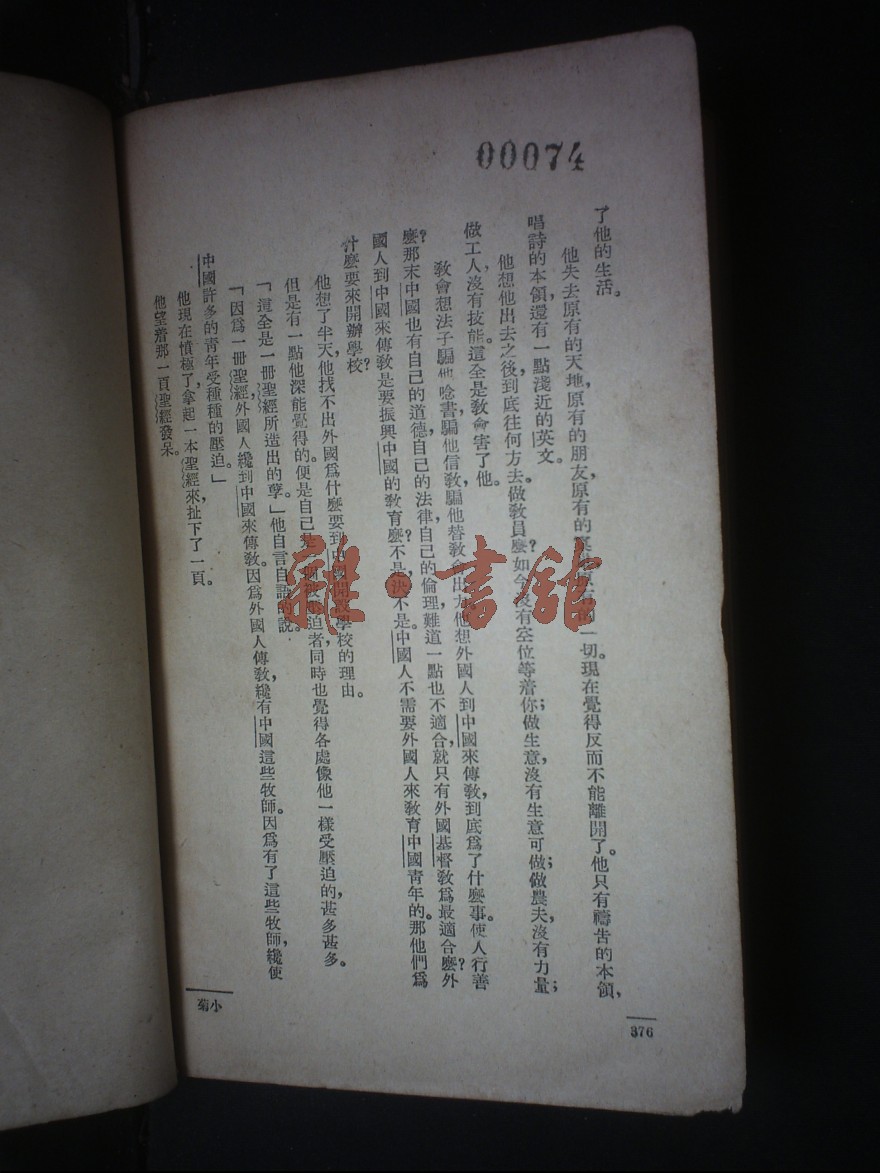 00074
了他的生活。
他失去原有的天地,原有的朋友,原有的原有的一切。現在覺得反而不能離開了。他只有禱告的本領,
唱詩的本領,還有一點淺近的英文。
他想他出去之後,到底往何方去。做教員麼?如今沒有空位等着你;做生意,沒有生意可做;做農夫,沒有力量;
做工人,沒有技能。這全是教會害了他。
教會想法子騙他唸書,騙他信教,騙他替教會出力。他想外國人到中國來傳教,到底爲了什麼事。使人行善
麼?那末中國也有自己的道德,自己的法律,自己的倫理,難道一點也不適合,就只有外國基督教爲最適合麼?外
國人到中國來傳教,是要振興中國的教育麼?不是,決不是。中國人不需要外國人來教育中國青年的。那他們爲
什麼要來開辦學校?
他想了半天,他找不出外國爲什麼要到中國開設學校的理由。
但是有一點他深能覺得的,便是自己是一個被壓迫者,同時也覺得各處像他一樣受壓迫的,甚多甚多。
「這全是一冊聖經所造出的孽。」他自言自語的說。
「因爲一冊聖經,外國人纔到中國來傳教。因爲外國人傳教,纔有中國這些牧師。因爲有了這些牧師,纔使
中國許多的青年受種種的壓迫。」
他現在憤極了,拿起一本聖經來,扯下了一頁。
他望着那一頁聖經發呆。
小菊
376
雜·書館